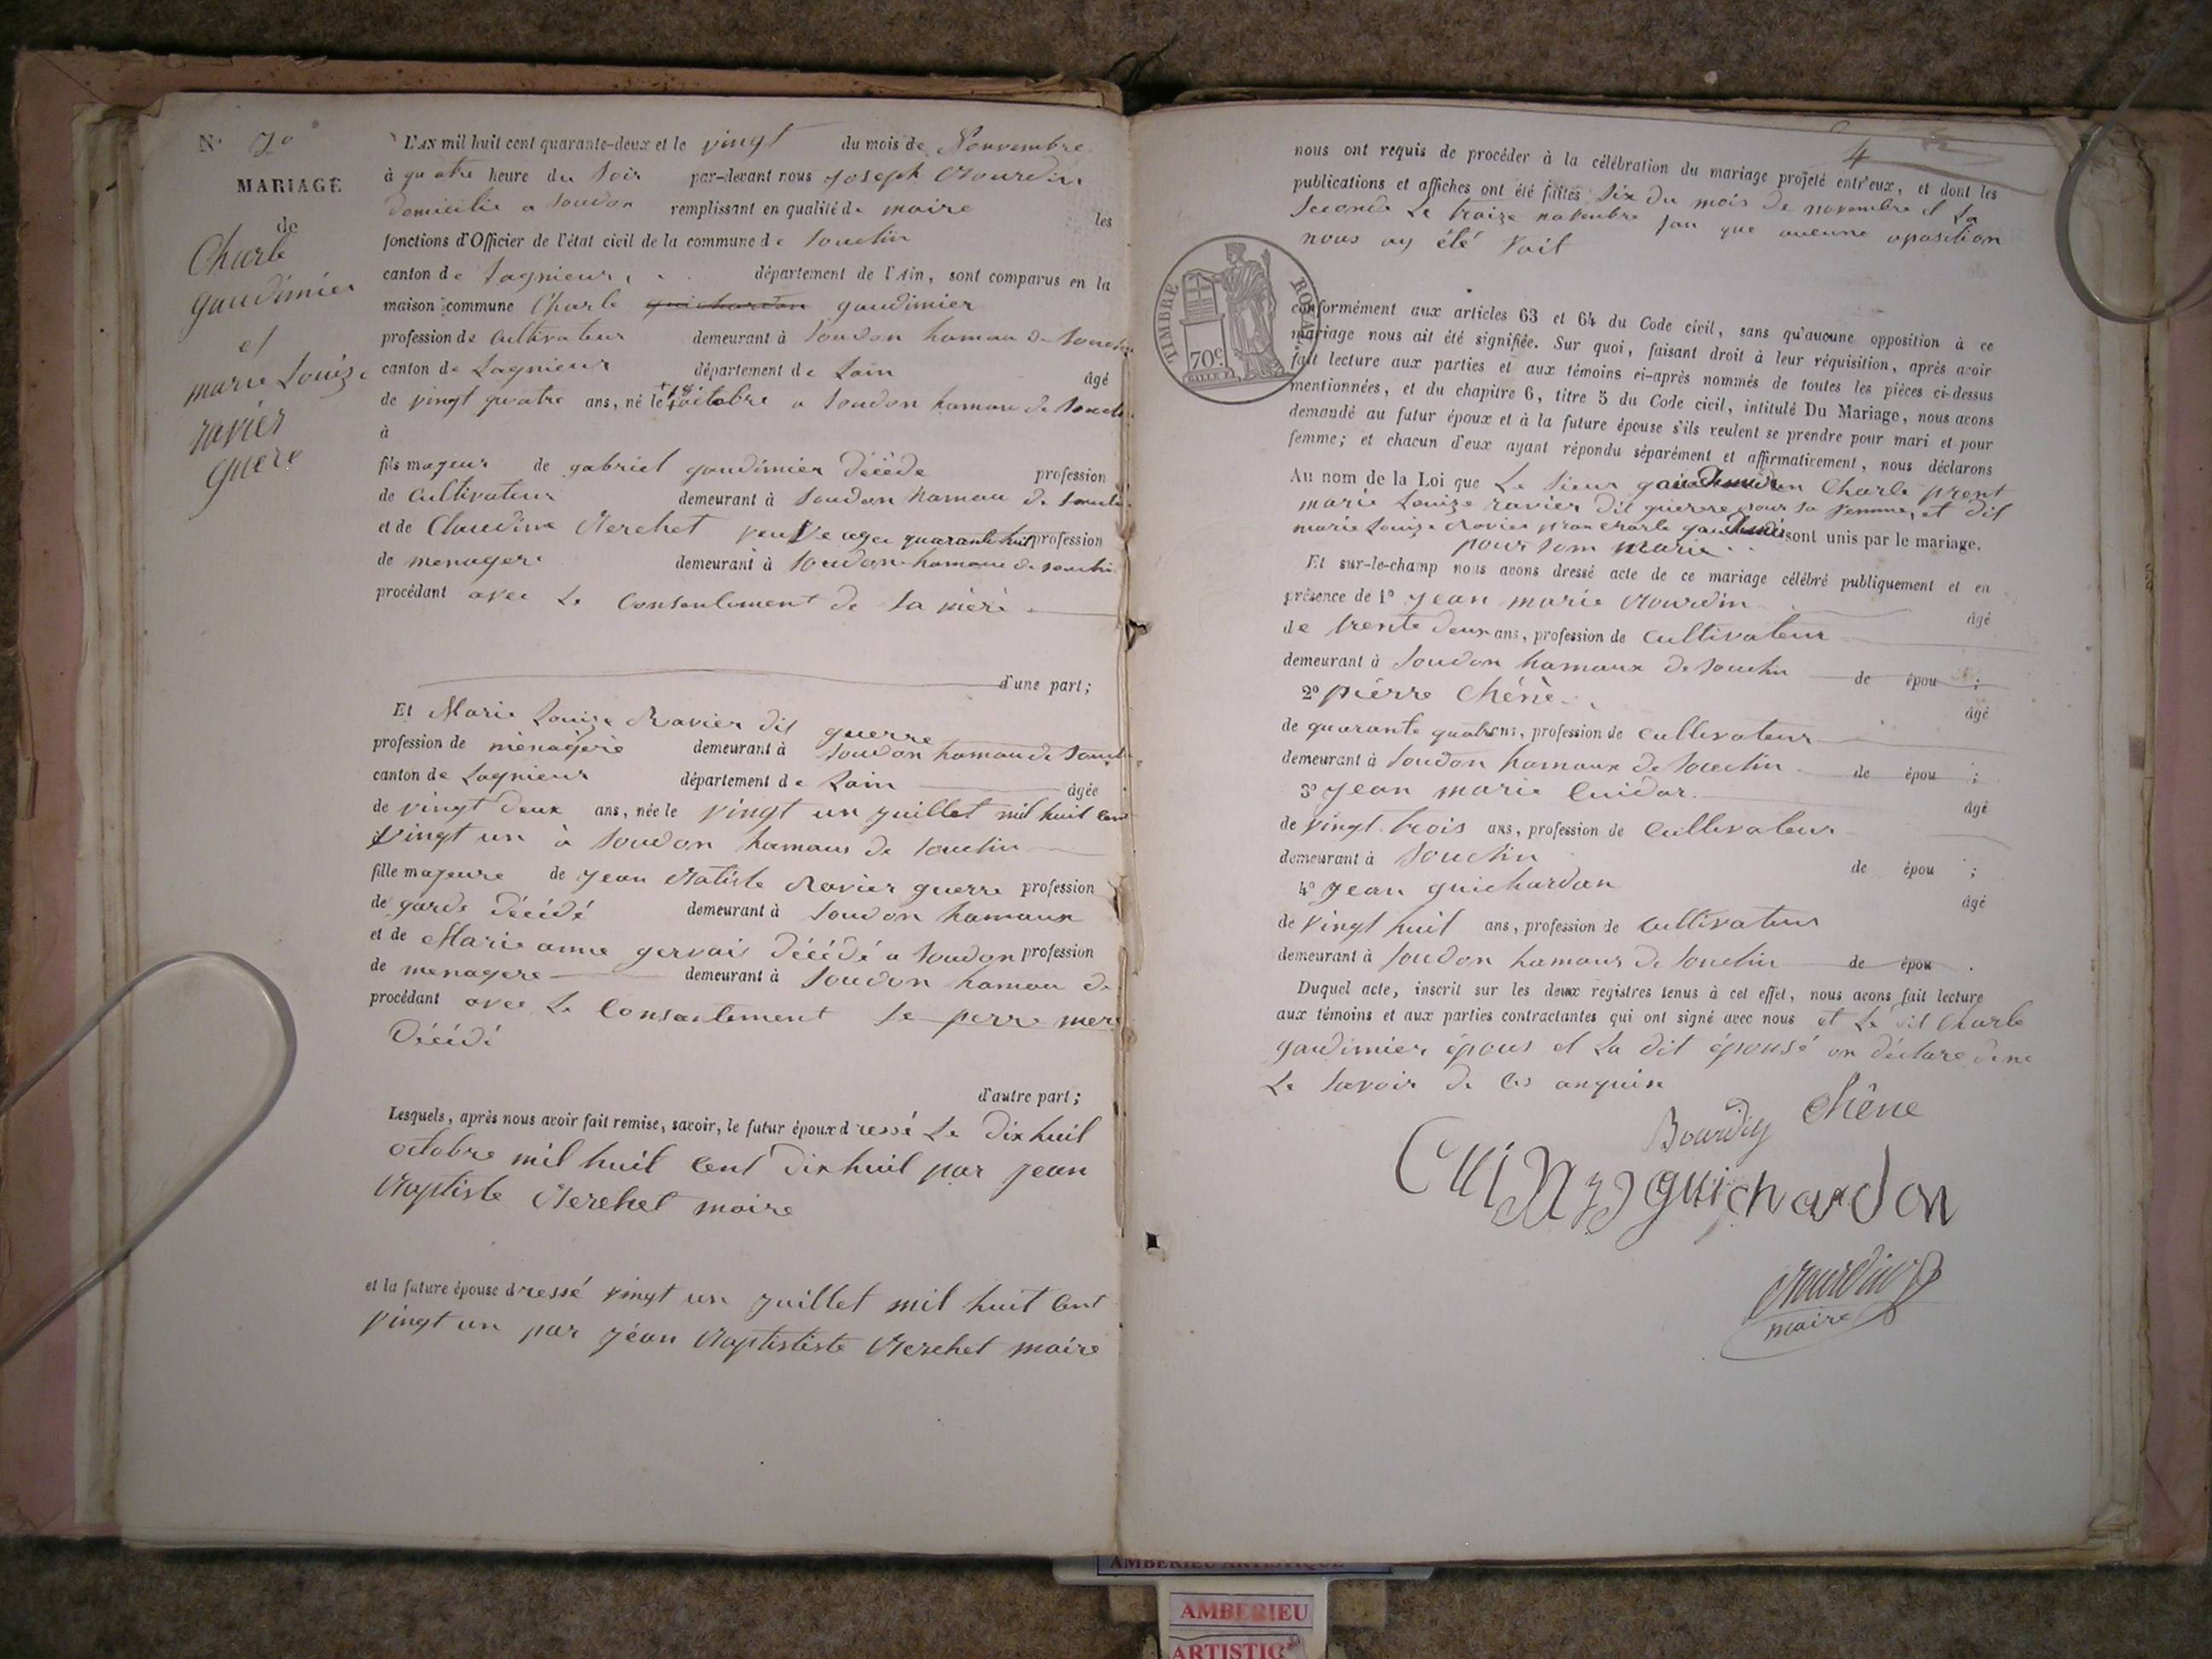 N° 7e
MARIAGE
de
Charle
gaudimier
et
marie Louize
ravier
guere
L'AN mil huit cent quarante-deux et le vingt du mois de Nouvembre
à quatre heure du soir par-devant nous joseph Bourdin
domicilie a soudon remplissant en qualité de maire les
fonctions d'Officier de l'état civil de la commune de souclin
canton de Lagnieux département de l'Ain, sont comparus en la
maison commune Charle guichardon gaudimier
profession de cultivateur demeurant à soudon hamau de souclin
canton de Lagnieux département de Lain âgé
de vingt quatre ans, né le 18 octobre a soudon hamau de soucli
à
fils majeur de gabriel gaudimier décède profession
de cultivateur demeurant à soudon hamau de soucli
et de Claudine Berchet veuve agee quarante huit profession
de menagere demeurant à soudon hamau de souclin
procédant avec le consentement de sa mère
d'une part;
Et Marie Louize Ravier dit guerre
profession de ménagère demeurant à soudon hamau de soucli
canton de Lagnieux département de Lain âgée
de vingt deux ans, née le vingt un juillet mil huit cent
vingt un à soudon hamaux de souclin
fille majeure de jean Batiste Ravier guerre profession
de garde décédé demeurant à soudon hamaux
et de Marie anne gervais décédé a soudon profession
de menagere demeurant à soudon hamau de
procédant avec le consentement le perre mere
décédé
d'autre part;
Lesquels, après nous avoir fait remise, savoir, le futur époux dressé le dix huit
octobre mil huit cent dix huit par jean
Baptiste Berchet maire
et la future épouse dressé vingt un juillet mil huit cent
vingt un par jéan Baptististe Berchet maire
4
nous ont requis de procéder à la célébration du mariage projeté entr'eux, et dont les
publications et affiches ont été faites six du mois de novembre et la
seconde le traize novembre san que aucune oposition
nous ay été fait
TIMBRE ROYAL
70c.
conformément aux articles 63 et 64 du Code civil, sans qu'aucune opposition à ce
mariage nous ait été signifiée. Sur quoi, faisant droit à leur réquisition, après avoir
fait lecture aux parties et aux témoins ci-après nommés de toutes les pièces ci-dessus
mentionnées, et du chapitre 6, titre 5 du Code civil, intitulé Du Mariage, nous avons
demandé au futur époux et à la future épouse s'ils veulent se prendre pour mari et pour
femme; et chacun d'eux ayant répondu séparément et affirmativement, nous déclarons
Au nom de la Loi que Le sieur Charle prent
marie Louize ravier dit guerre pour sa femme, et dit
marie Louize Ravier pran charle sont unis par le mariage.
pour som marie
Et sur-le-champ nous avons dressé acte de ce mariage célébré publiquement et en
présence de 1° jean marie Bourdin âgé
de trente deux ans, profession de cultivateur
demeurant à soudon hamaux de souclin de épou ;
2° piérre Chéne âgé
de quarante quatre ans, profession de cultivateur
demeurant à soudon hamaux de souclin de épou ;
3° jean marie Cuidar âgé
de vingt trois ans, profession de cultivateur
demeurant à souclin de épou ;
4° jean guichardon âgé
de vingt huit ans, profession de cultivateur
demeurant à soudon hamaux de souclin de épou .
Duquel acte, inscrit sur les deux registres tenus à cet effet, nous avons fait lecture
aux témoins et aux parties contractantes qui ont signé avec nous et le dit charle
gaudimier épous et la dit épousé on déclare de ne
le savoir de ces anquise
Bourdin Chêne
guichardon
Bourdin
maire
AMBERIEU ARTISTIQUE
AMBERIEU
ARTISTIQ